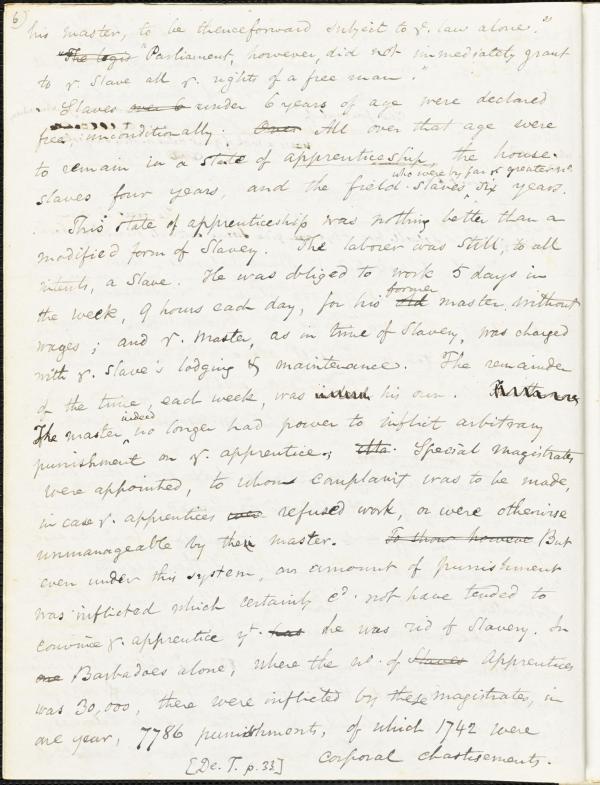 6)
his master, to be thenceforward subject to yͤ. law alone."
"The legis "Parliament, however, did not immediately grant
to yͤ. Slave all yͤ. rights of a free man."
Slaves over 6 under 6 years of age were declared
free, unconditionally. Over All over that age were
to remain in a state of apprenticeship, the house-
who were by far yͤ greater nº.
slaves four years, and the field-slaves six years.
This state of apprenticeship was nothing better than a
modified form of Slavery. The laborer was still, to all
intents, a slave. He was obliged to work 5 days in
former
the week, 9 hours each day, for his old master, without
wages; and yͤ. master, as in time of Slavery, was charged
with yͤ. slave's lodging & maintenance. The remainder
of the time, each week, was indeed his own.
indeed
The master no longer had power to inflict arbitrary
punishment on yͤ. apprentice; Special magistrates
were appointed, to whom complaint was to be made,
in case yͤ. apprentices refused work, or were otherwise
unmanageable by their master. To show however But
even under this system, an amount of punishment
was inflicted which certainly cᵈ. not have tended to
convince yͤ. apprentice yᵗ. has he was rid of Slavery. In
one Barbadoes alone, where the nº. of Slaves Apprentices
was 30,000, there were inflicted by these magistrates, in
one year, 7786 punishments, of which 1742 were
corporal chastisements.
[De. T. p. 33]